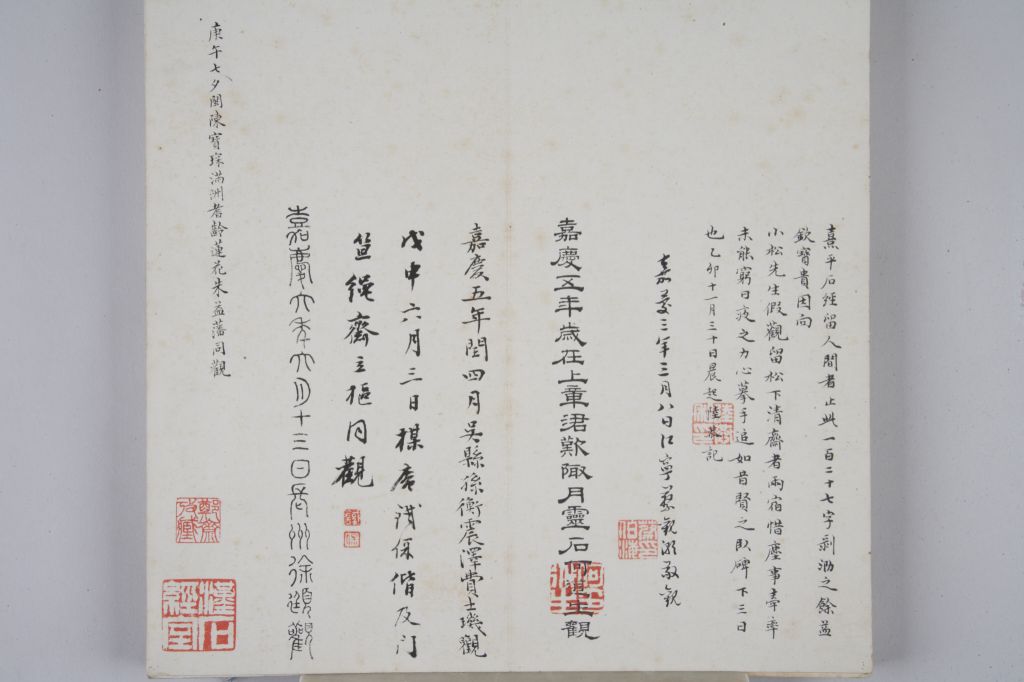 熹平石經留人間者止此一百二十七字剥泐之餘益
欽寶貴因向
小松先生假觀留松下清齋者兩宿惜塵事牽率
未能窮日疲之力心摹手追如昔賢之臥碑下三日
也乙卯十一月三十日晨起陸恭記
嘉慶三年三月八日江寧
觀
嘉慶五年歲在上章涒歎陬月靈石何道生觀
嘉慶五年閏四月吳縣孫衡震澤費士璣觀
戊申六月三日楳庵誠保偕及門
笪繩齋立樞同觀
嘉慶六年六月十三日長州徐頲觀
庚午七夕閩陳寶琛滿洲耆齡蓮花朱益藩同觀
鄭齋
漢石經室